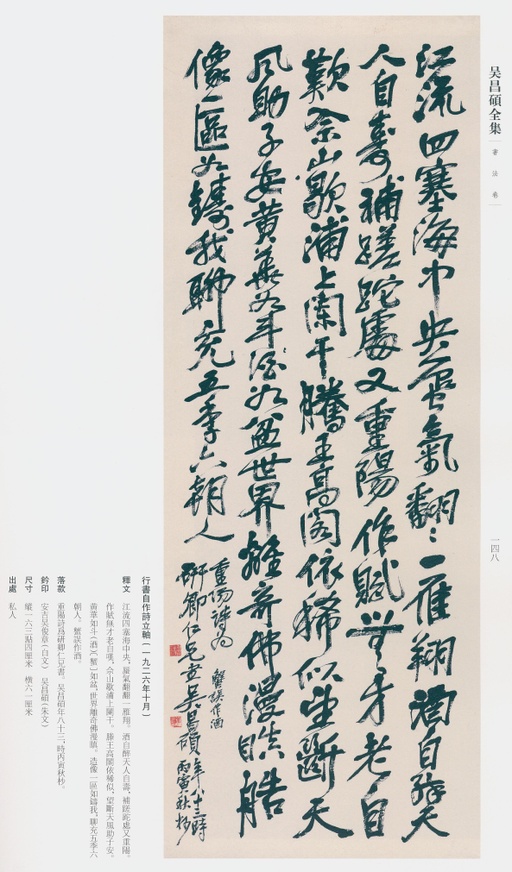 吴昌碩全集
書法卷
一四八
江流四塞海中央蜃氣翻〻一雁翔酒自醉天
人自壽補蹉跎處又重陽作賦無才老自
歎佘山歇浦上闌干騰王高閣依稀似望斷天
風助子安黃華如斗酒如盆世界離奇佛漫瞋造
像一區如鑄我聊充五季六朝人
重陽詩為
蟹誤作酒
研卿仁兄書吴昌碩年八十三時丙寅秋杪
行書自作詩立軸(一九二六年十月)
釋文 江流四塞海中央,蜃氣翻翻一雁翔。酒自醉天人自壽,補蹉跎處又重陽。
作賦無才老自嘆,佘山歇浦上闌干。滕王高閣依稀似,望斷天風助子安。
黃華如斗酒(蟹)如盆,世界離奇佛漫瞋。造像一區如鑄我,聊充五季六
朝人。蟹誤作酒。
落款 重陽詩爲研卿仁兄書。吴昌碩年八十三,時丙寅秋杪。
鈐印 安吉吴俊章(白文) 吴昌碩(朱文)
尺寸 縱一六三點四厘米 橫六一厘米
出處 私人